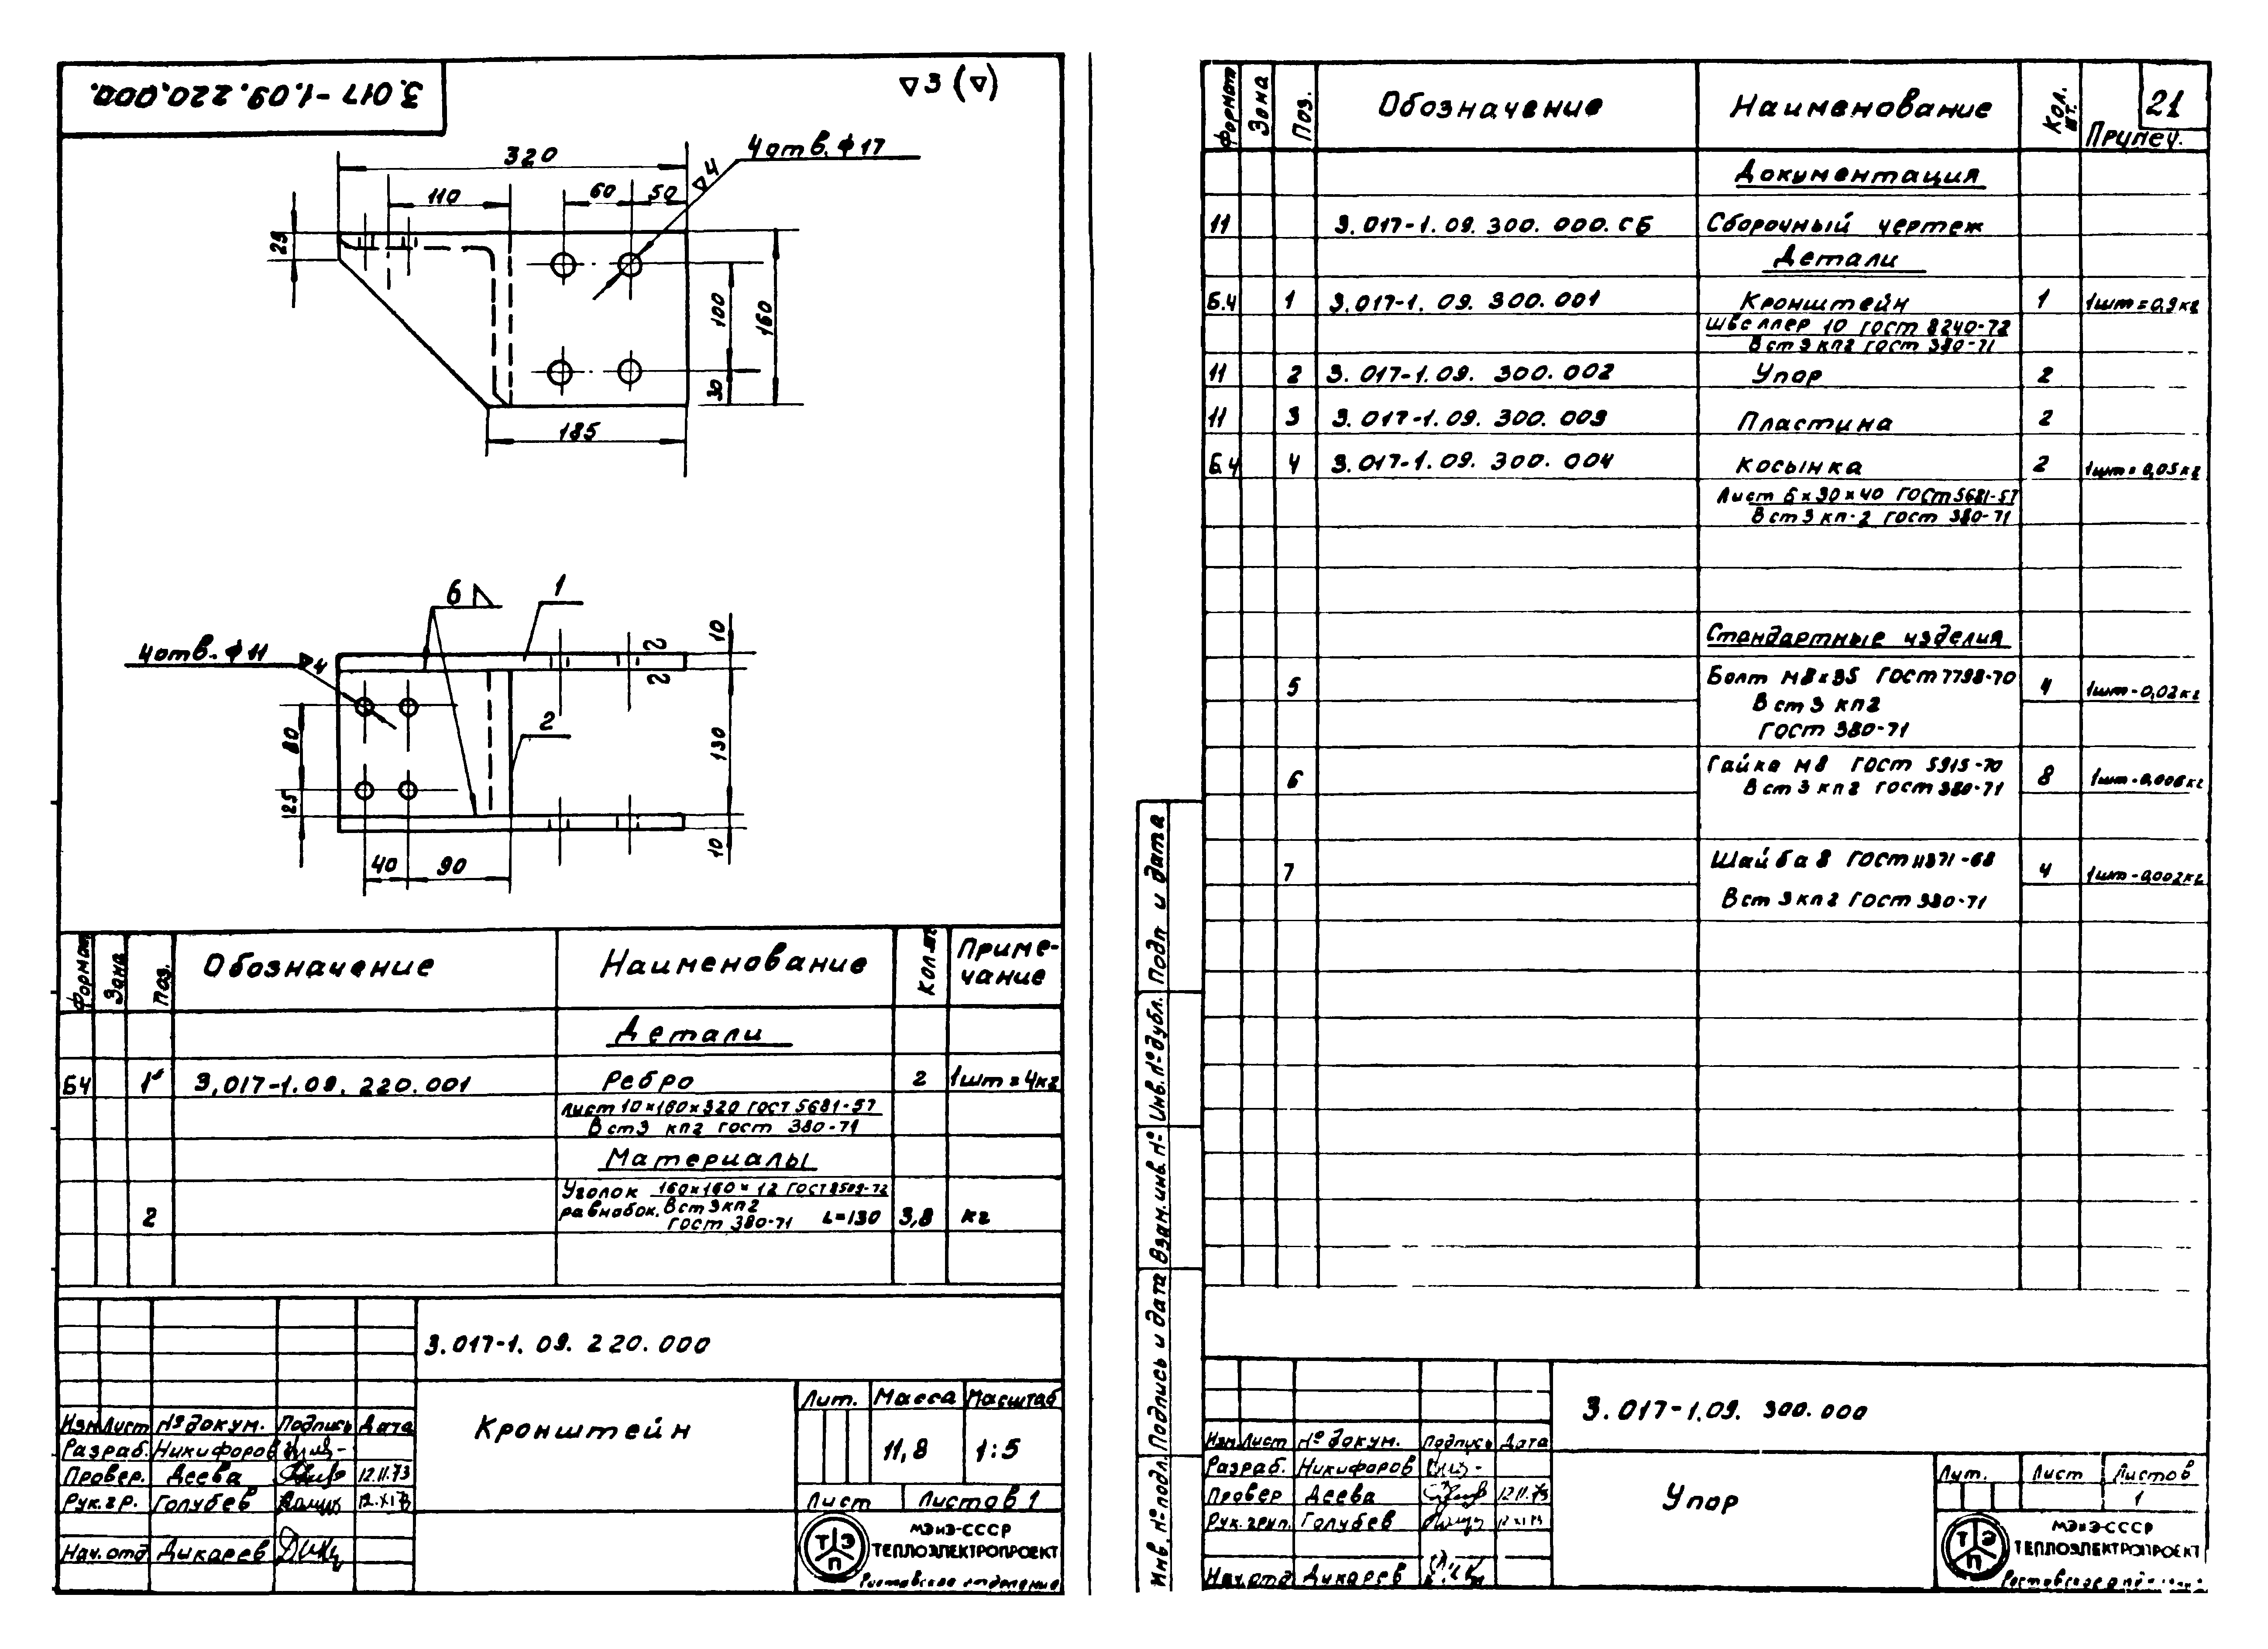 3.017-1.09.220.000.
▽3 (▽)
4 отв. ϕ 17
▽4
320
110
60
50
25
100
160
30
185
6
1
4 отв. ϕ 11
▽4
2
2
2
80
25
10
130
10
40
90
Формат
Зона
Поз.
Обозначение
Наименование
Кол. шт.
Приме-
чание
Детали
БЧ
1
3.017-1.09.220.001
Ребро
2
1шт = 4кг
Лист 10×160×320 ГОСТ 5681-57
В ст3 кп2 ГОСТ 380-71
Материалы
Уголок 160×160×12 ГОСТ 8509-72
равнобок. В ст 3кп2
ГОСТ 380-71 L=130
2
3,8
кг
3.017-1.09.220.000
Кронштейн
Лит.
Масса
Масштаб
11,8
1:5
Лист
Листов 1
Изм Лист № докум. Подпись Дата
Разраб. Никифоров
Провер. Деева 12.11.73
Рук.гр. Голубев 12.XI.73
Нач.отд Дикарев
ТЭП
МЭиЭ-СССР
ТЕПЛОЭЛЕКТРОПРОЕКТ
Ростовское отделение
Формат
Зона
Поз.
Обозначение
Наименование
Кол. шт.
21
Примеч.
Документация
11 3.017-1.09.300.000.СБ Сборочный чертеж
Детали
Б.Ч 1 3.017-1.09.300.001 Кронштейн 1 1шт = 0,9кг
Швеллер 10 ГОСТ 8240-72
В ст 3 кп2 ГОСТ 380-71
11 2 3.017-1.09.300.002 Упор 2
11 3 3.017-1.09.300.003 Пластина 2
Б.Ч 4 3.017-1.09.300.004 Косынка 2 1шт = 0,05кг
Лист 6×30×40 ГОСТ 5681-57
В ст 3 кп-2 ГОСТ 380-71
Стандартные изделия
5 Болт М8×35 ГОСТ 7798-70 4 1шт-0,02кг
В ст 3 кп2
ГОСТ 380-71
6 Гайка М8 ГОСТ 5915-70 8 1шт-0,006кг
В ст 3 кп2 ГОСТ 380-71
7 Шайба 8 ГОСТ 11371-68 4 1шт-0,002кг
В ст 3 кп2 ГОСТ 380-71
Подп и дата
Инв. № дубл.
Взам. инв. №
Подпись и дата
Инв. № подл.
3.017-1.09.300.000
Упор
Изм Лист № докум. Подпись Дата
Разраб. Никифоров
Провер Деева 12.11.73
Рук.груп. Голубев 12.XI.73
Нач.отд Дикарев
Лит.
Лист
Листов
1
ТЭП
МЭиЭ-СССР
ТЕПЛОЭЛЕКТРОПРОЕКТ